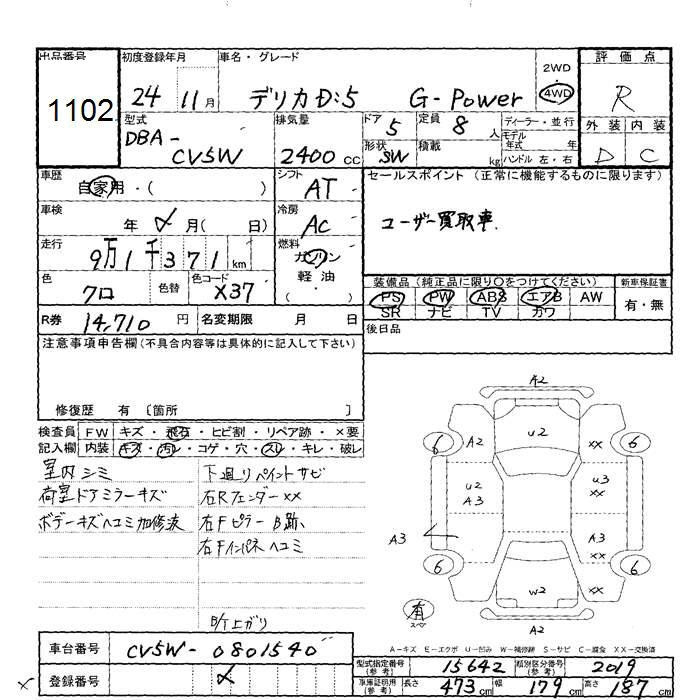 出品番号 初度登録年月 車名・グレード 2WD 評価点
1102 24 11月 デリカD:5 G-Power 4WD R
型式 排気量 ドア 定員 ディーラー・並行 外装 内装
DBA- 5 8人 モデル年式 年
CV5W 2400cc 形状 SW 積載 kg ハンドル 左・右 D C
車歴 シフト セールスポイント (正常に機能するものに限ります)
自家用・( ) AT
車検 冷房 ユーザー買取車.
年 月( 日) AC
走行 燃料
9万1千371km ガソリン
軽油
( )
色 色替 色コード 装備品(純正品に限り○をつけてください) 新車保証書
クロ X37 PS PW ABS エアB AW 有・無
SR ナビ TV カワ
R券 14,710円 名変期限 月 日 後日品
注意事項申告欄(不具合内容等は具体的に記入して下さい)
修復歴 有 〔箇所 〕
検査員 FW キズ・飛石・ヒビ割・リペア跡・×要
記入欄 内装 キズ・汚レ・コゲ・穴・スレ・キレ・破レ
室内シミ 下廻りペイントサビ
荷室ドアミラーキズ 右Rフェンダー××
ボデーキズヘコミ加修波 右Fピラー B跡
右Fインパネヘコミ
A2
6 A2 U2 XX 6
U2 A3 U3 XX
A3 A3 XX A3
6 W2 XX 6
有 スペア A2
A-キズ E-エクボ U-凹み W-補修跡 S-サビ C-腐食 XX-交換済
車台番号 CV5W-0801540
登録番号
型式指定番号(参考) 15642 類別区分番号(参考) 2019
車庫証明用(参考) 長さ 473cm 幅 179cm 高さ 187cm